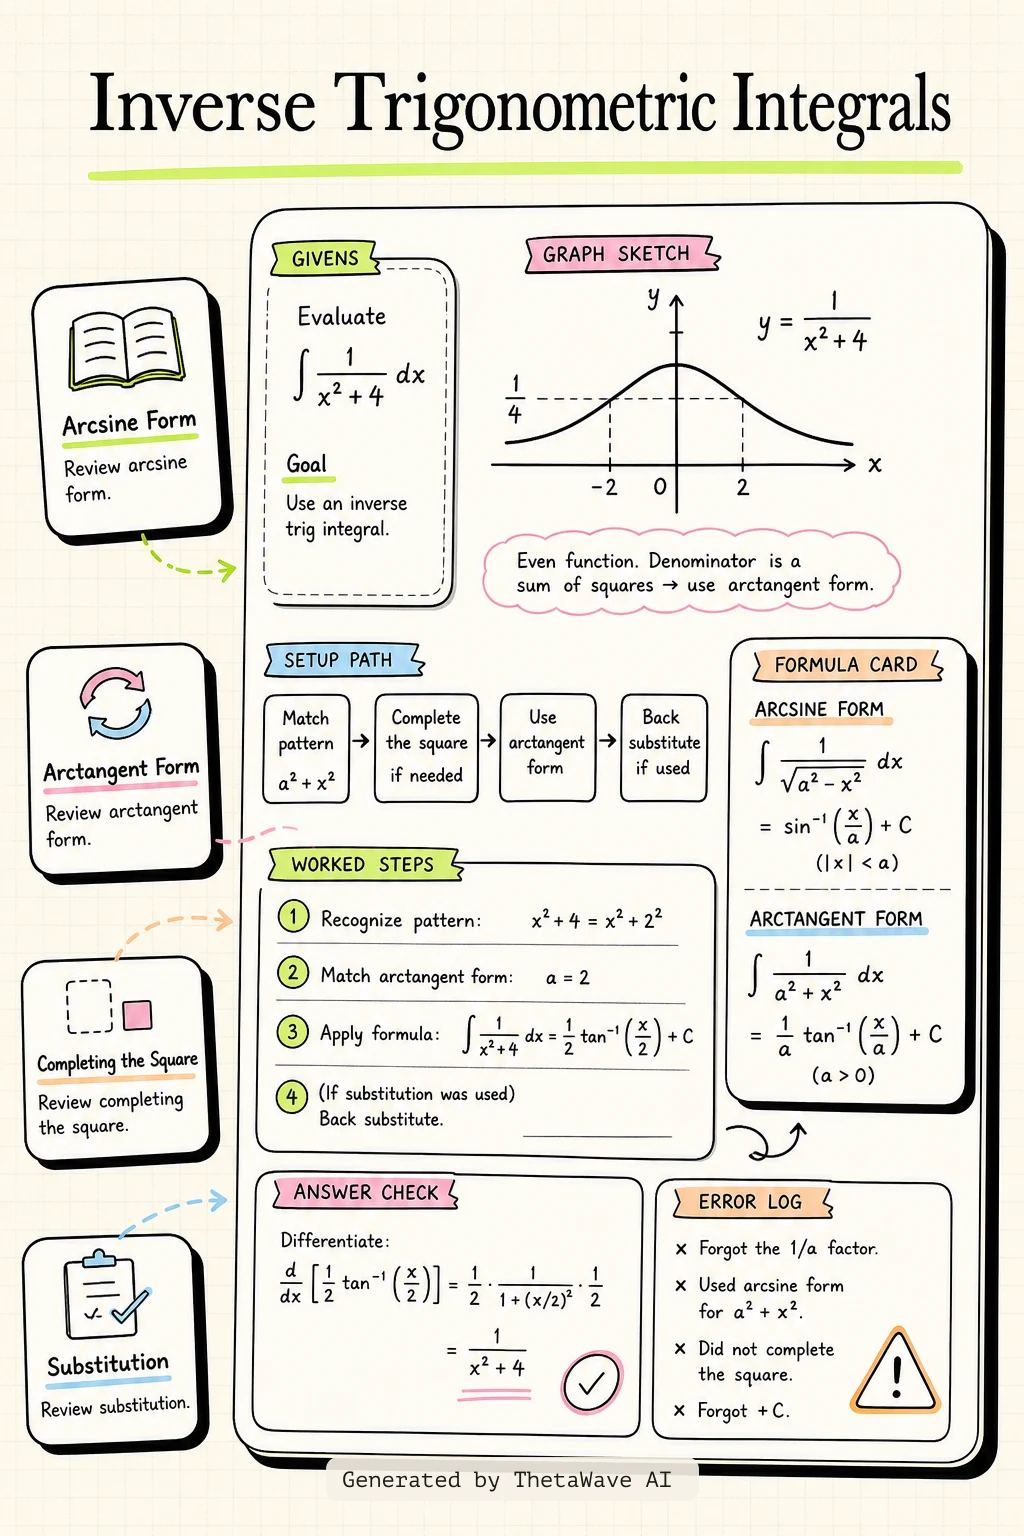 Inverse Trigonometric Integrals
Arcsine Form
Review arcsine
form.
Arctangent Form
Review arctangent
form.
Completing the Square
Review completing
the square.
Substitution
Review substitution.
GIVENS
Evaluate
∫ 1/(x² + 4) dx
Goal
Use an inverse
trig integral.
GRAPH SKETCH
y
y = 1/(x² + 4)
1/4
x
-2 0 2
Even function. Denominator is a
sum of squares → use arctangent form.
SETUP PATH
Match
pattern
a² + x²
→
Complete
the square
if needed
→
Use
arctangent
form
→
Back
substitute
if used
FORMULA CARD
ARCSINE FORM
∫ 1/√(a² − x²) dx
= sin⁻¹ (x/a) + C
(|x| < a)
ARCTANGENT FORM
∫ 1/(a² + x²) dx
= 1/a tan⁻¹ (x/a) + C
(a > 0)
WORKED STEPS
1 Recognize pattern: x² + 4 = x² + 2²
2 Match arctangent form: a = 2
3 Apply formula: ∫ 1/(x² + 4) dx = 1/2 tan⁻¹ (x/2) + C
4 (If substitution was used)
Back substitute.
ANSWER CHECK
Differentiate:
d/dx [1/2 tan⁻¹ (x/2)] = 1/2 · 1/(1 + (x/2)²) · 1/2
= 1/(x² + 4)
ERROR LOG
x Forgot the 1/a factor.
x Used arcsine form
for a² + x².
x Did not complete
the square.
x Forgot + C.
Generated by ThetaWave AI